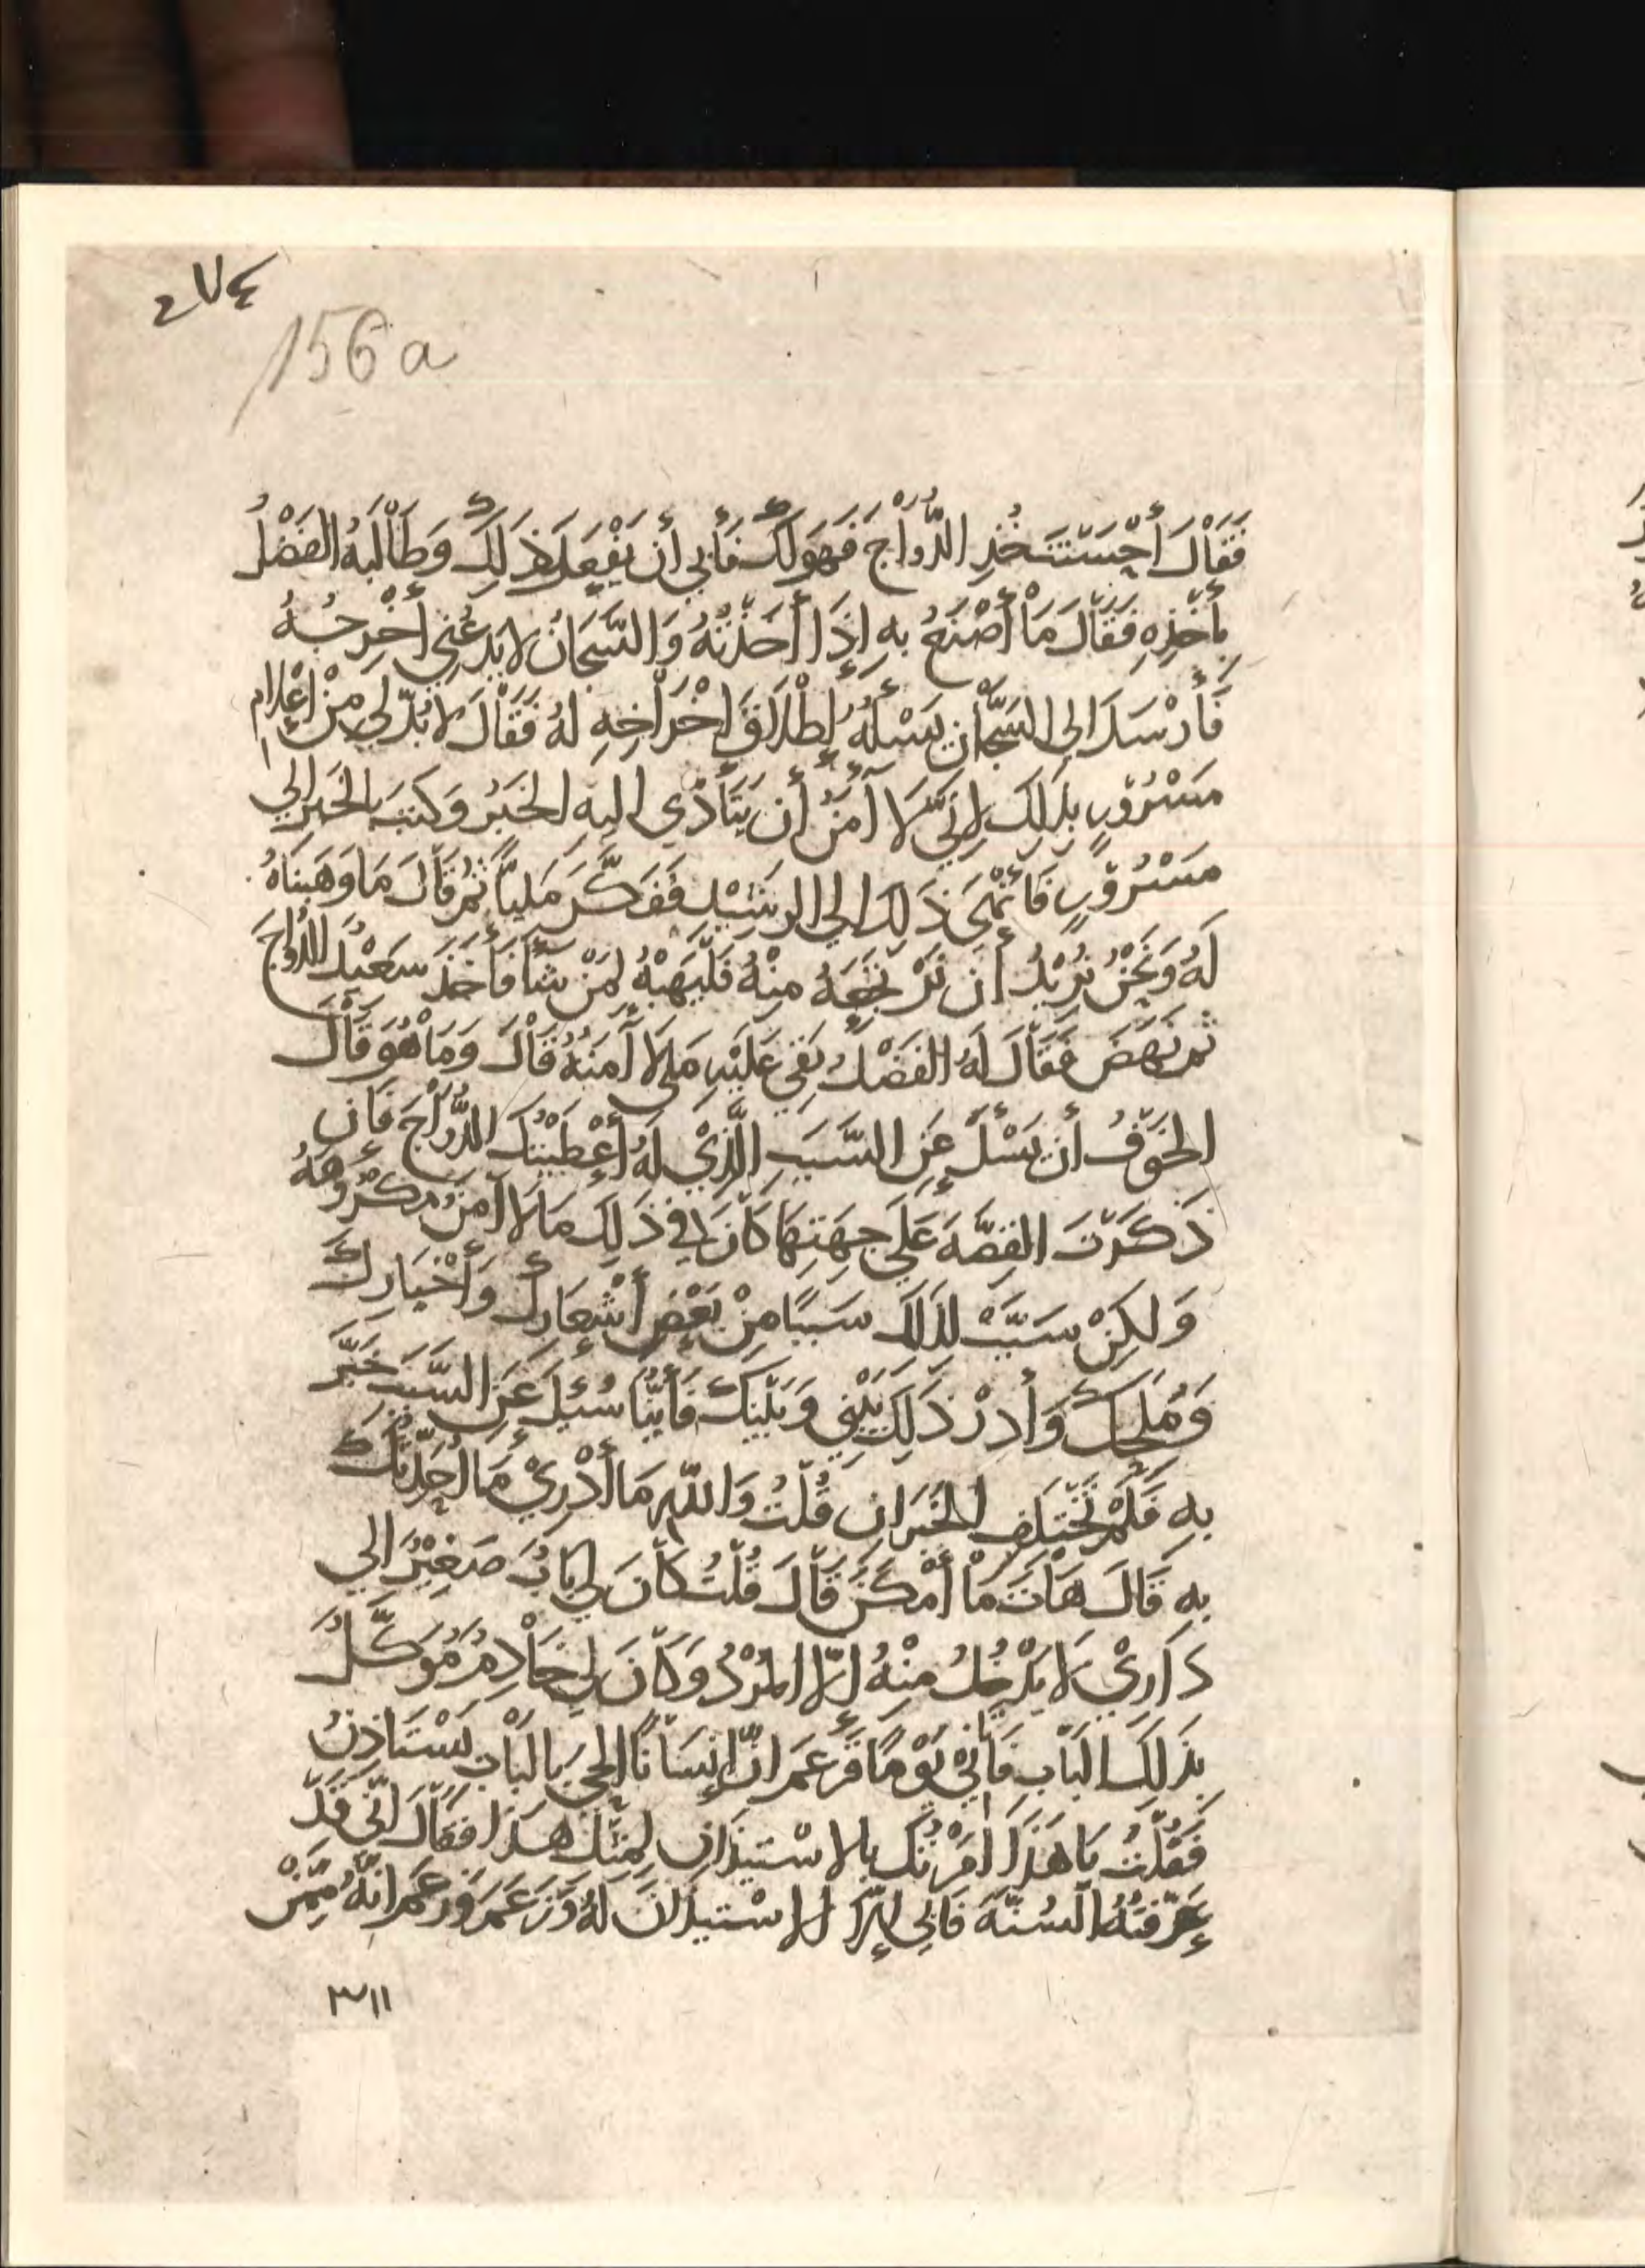 ٢٧٤
156a
فَقَالَ أَحْسَنْتَ خُذِ الدُّوَاجَ فَهَوَ لَكَ فَأَبَى أَن يَفْعَلَ ذَلِكَ وَطَالَبَهُ الفَضْلُ
بِأَخْذِهِ فَقَالَ مَا أَصْنَعُ بِهِ إِذَا أَخَذْتُهُ وَالسَّجَّانُ لا يَدَعُنِي أُخْرِجُهُ
فَأَرْسَلَ إلى السَّجَّانِ يَسْأَلُهُ إِطْلاقَ إِخْرَاجِهِ لَهُ فَقَالَ لا بُدَّ لِي مِنْ إِعْلامِ
مَسْرُورٍ بِذَلِكَ لِأَنِّي لا آمَنُ أَن يَتَأَدَّى إليهِ الخَبَرُ وَكَتَبَ بِالخَبَرِ إلى
مَسْرُورٍ فَأَنْهَى ذَلِكَ إلى الرشِيْدِ فَفَكَّرَ مَلِيًّا ثُمَّ قَالَ مَا وَهَبْنَاهُ
لَهُ وَنَحْنُ نُرِيْدُ أَن نَرْتَجِعَهُ مِنْهُ فَلْيَهَبْهُ لِمَنْ شَآءَ فَأَخَذَ سَعِيْدٌ الدُّوَاجَ
ثم نَهَضَ فَقَالَ لَهُ الفَضْلُ بَقِيَ عَلَيْكَ مَا لا آمَنُهُ قَالَ وَمَا هُوَ قَالَ
الخَوْفُ أَن يَسْئَلَ عَنِ السَّبَبِ الَّذِيْ لَهُ أَعْطَيْتُكَ الدُّوَاجَ فَإن
ذَكَرْتَ القِصَّةَ عَلَى جِهَتِهَا كَانَ فِي ذَلِكَ مَا لا آمَنُ مَكْرُوهَهُ
وَلكِنْ سَبِّبْ لِذَلِكَ سَبَبًا مِنْ بَعْضِ أَشْعَارِكَ وَأَخْبَارِكَ
وَمُلَحِكَ وَأَدِرْ ذَلِكَ بَيْنِي وَبَيْنَكَ فَأَيُّنَا سُئِلَ عَنِ السَّبَبِ خَبَّرَ
بِهِ فَلَمْ يَخْتَلِفِ الخَبَرَانِ قُلْتُ وَاللَّهِ مَا أَدْرِيْ مَا أُحَدِّثُكَ
بِهِ قَالَ هَاتِ مَا أَمْكَنَ قَالَ قُلْتُ كَانَ لِي بَابٌ صَغِيْرٌ إلى
دَارِيْ لا يَدْخُلُ مِنْهُ إلّا المُرْدُ وَكَانَ لِي خَادِمٌ مُوَكَّلٌ
بِذَلِكَ البَابِ فَأَتَانِي يَوْمًا فَزَعَمَ أَنَّ إِنْسَانًا أَلْحَى بِالبَابِ يَسْتَأذِنُ
فَقُلْتُ يَا هَذَا أَمَرْتُكَ بِالاسْتِئذَانِ لِمِثْلِ هَذَا فَقَالَ إِنِّي قَدْ
عَرَّفْتُهُ السُنَّةَ فَأَبَى إِلَّا الاسْتِئذَانَ لَهُ وَزَعَمَ أَنَّهُ مِمَّنْ
٣١١